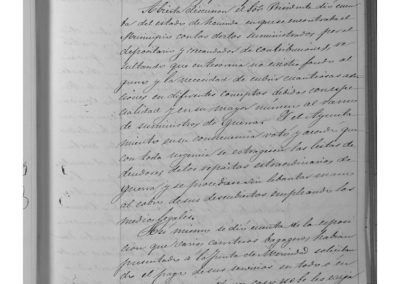 Abierta discusion el Sor. Presidente dio cuen
ta del estado de Hacienda en que se encontraba el
Municipio con los datos suministrados por el
depositario y recaudador de contribuciones, re
sultando que en terreno no existen fondos al
gunos y la necesidad de cubrir cuantiosas aten
ciones en diferentes conceptos debidos con espe
cialidad y en su mayor número al ramo
de suministros de guerra. Y el Ayunta
miento en su consecuencia votó y acordó que
con toda urgencia se extragesen las listas de
deudores de los repartos extraordinarios de
guerra y se procediese sin levantar mano
al cobro de sus descubiertos empleando los
medios legales.
Asi mismo se dio cuenta de la exposi
cion que varios carreteros bagageros habian
presentado a la junta de Hermandad solicitan
do el pago de sus servicios en todo o en